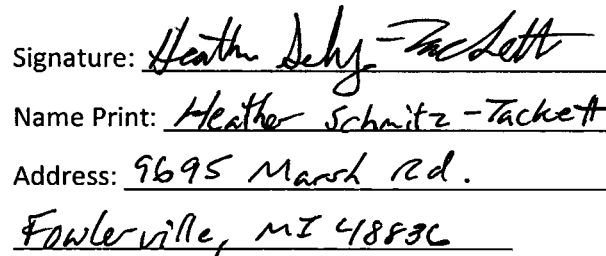 Signature: Heather Schmitz-Tackett
Name Print: Heather Schmitz-Tackett
Address: 9695 Marsh Rd.
Fowlerville, MI 48836